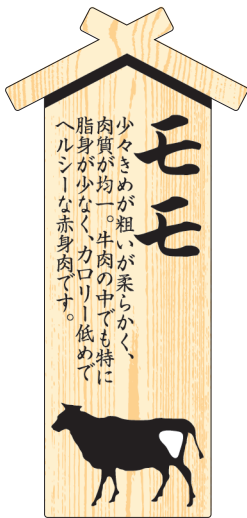 モモ
少々きめが粗いが柔らかく、
肉質が均一。牛肉の中でも特に
脂身が少なく、カロリー低めで
ヘルシーな赤身肉です。